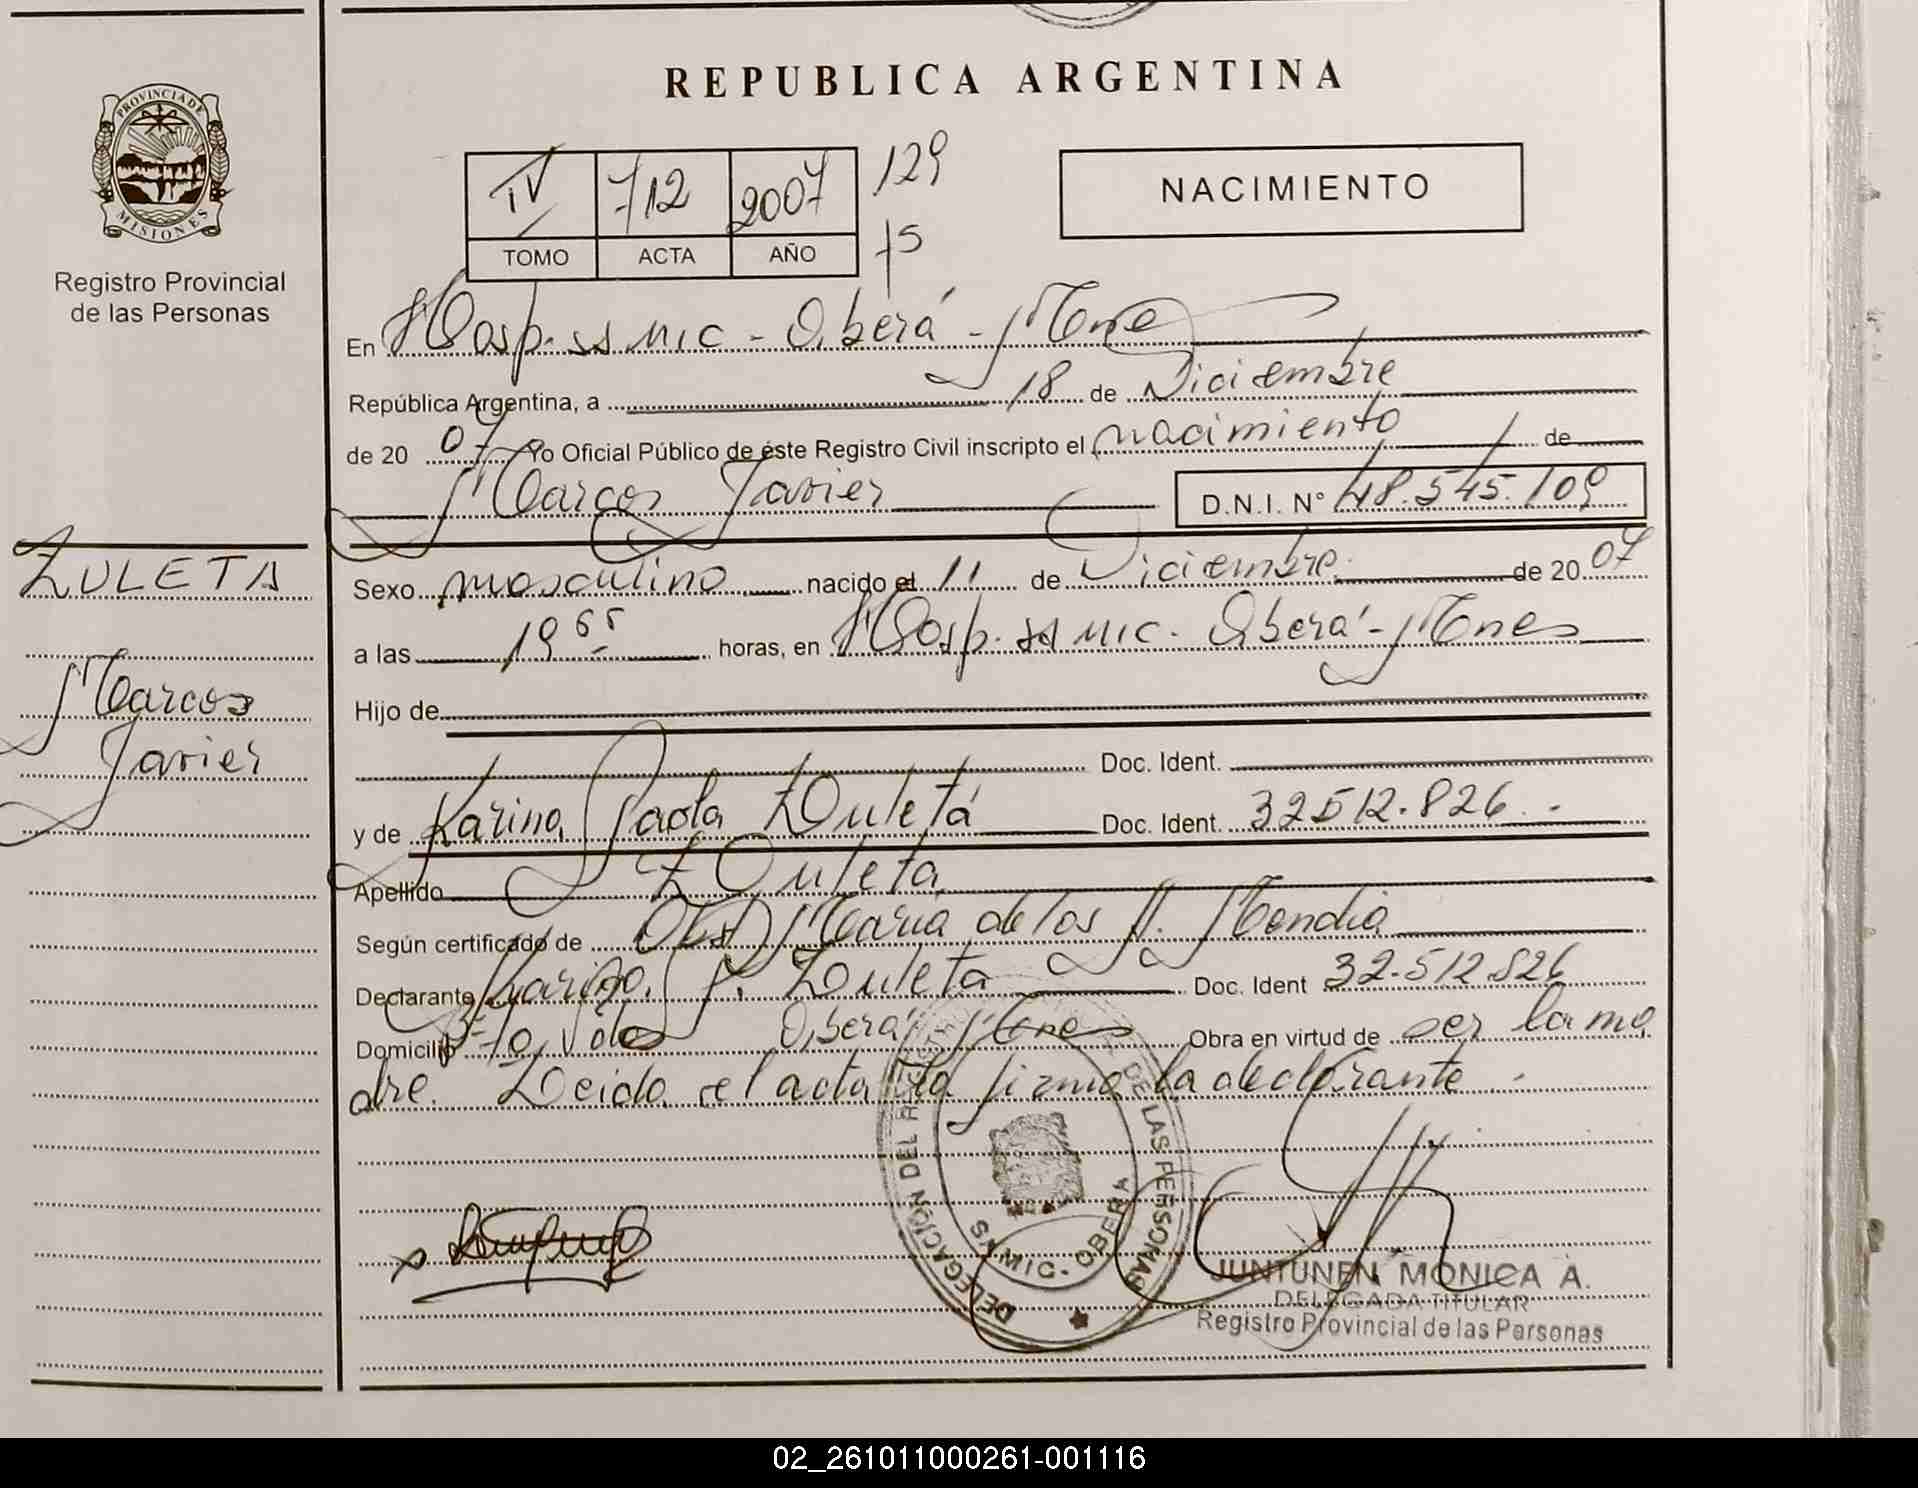 REPUBLICA ARGENTINA
PROVINCIA DE
MISIONES
Registro Provincial
de las Personas
IV 712 2007 129
TOMO ACTA AÑO 75
NACIMIENTO
En Hosp. ss mic - Oberá - Mnes
República Argentina, a 18 de Diciembre
de 2007 Yo Oficial Público de éste Registro Civil inscripto el nacimiento de
Marcos Javier D.N.I. N° 48.545.109
ZULETA
Marcos
Javier
Sexo masculino nacido el 11 de Diciembre de 2007
a las 19 horas, en Hosp. ss mic. Oberá - Mnes
Hijo de
Doc. Ident.
y de Karina Paola Zuletá Doc. Ident. 32512.826.-
Apellido Zuleta
Según certificado de Obst María de los A. Mendia
Declarante Karina P. Zuleta Doc. Ident 32.512.826
Domicilio Oberá Mnes Obra en virtud de ser la ma
dre. Leida el acta la firma la declarante.-
DELEGACIÓN DEL REGISTRO DE LAS PERSONAS
SAMIC - OBERA
JUNTUNEN MONICA A.
DELEGADA TITULAR
Registro Provincial de las Personas
02_261011000261-001116